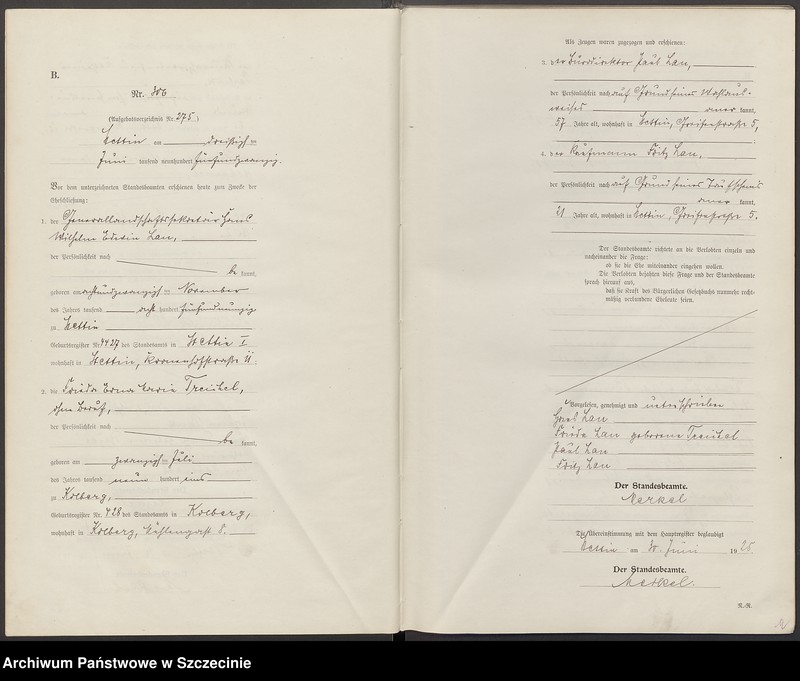 B.
Nr.
(Aufgebotsverzeichnis Nr. 275)
Stettin am dreißigsten
Juni tausend neunhundert fünfundzwanzig.
Vor dem unterzeichneten Standesbeamten erschienen heute zum Zwecke der
Eheschließung:
1. der Generallandschaftssekretär Hans
Wilhelm Erwin Lau,
der Persönlichkeit nach
be kannt,
geboren am achtundzwanzigsten November
des Jahres tausend acht hundert fünfundneunzig
zu Stettin
Geburtsregister Nr. 4427 des Standesamts in Stettin I
wohnhaft in Stettin, Kronenhofstraße 11;
2. die Frieda Erna Marie Treichel,
ohne Beruf,
der Persönlichkeit nach
be kannt,
geboren am zwanzigsten Juli
des Jahres tausend neun hundert eins
zu Kolberg,
Geburtsregister Nr. 428 des Standesamts in Kolberg,
wohnhaft in Kolberg, 8.
Als Zeugen waren zugezogen und erschienen:
3. der Bürodirektor Paul Lau,
der Persönlichkeit nach auf Grund seines Wahlaus-
weises aner kannt,
57 Jahre alt, wohnhaft in Stettin, Greifenstraße 5,
4. der Kaufmann Fritz Lau,
der Persönlichkeit nach auf Grund seines Taufscheins
aner kannt,
21 Jahre alt, wohnhaft in Stettin, Greifenstraße 5.
Der Standesbeamte richtete an die Verlobten einzeln und
nacheinander die Frage:
ob sie die Ehe miteinander eingehen wollen.
Die Verlobten bejahten diese Frage und der Standesbeamte
sprach hierauf aus,
daß sie kraft des Bürgerlichen Gesetzbuchs nunmehr recht-
mäßig verbundene Eheleute seien.
Vorgelesen, genehmigt und unterschrieben
Hans Lau
Frieda Lau geborene Treichel
Paul Lau
Fritz Lau
Der Standesbeamte.
Merkel
Die Übereinstimmung mit dem Hauptregister beglaubigt
Stettin am 30. Juni 1925.
Der Standesbeamte.
Merkel.
R.-R.
Archiwum Państwowe w Szczecinie